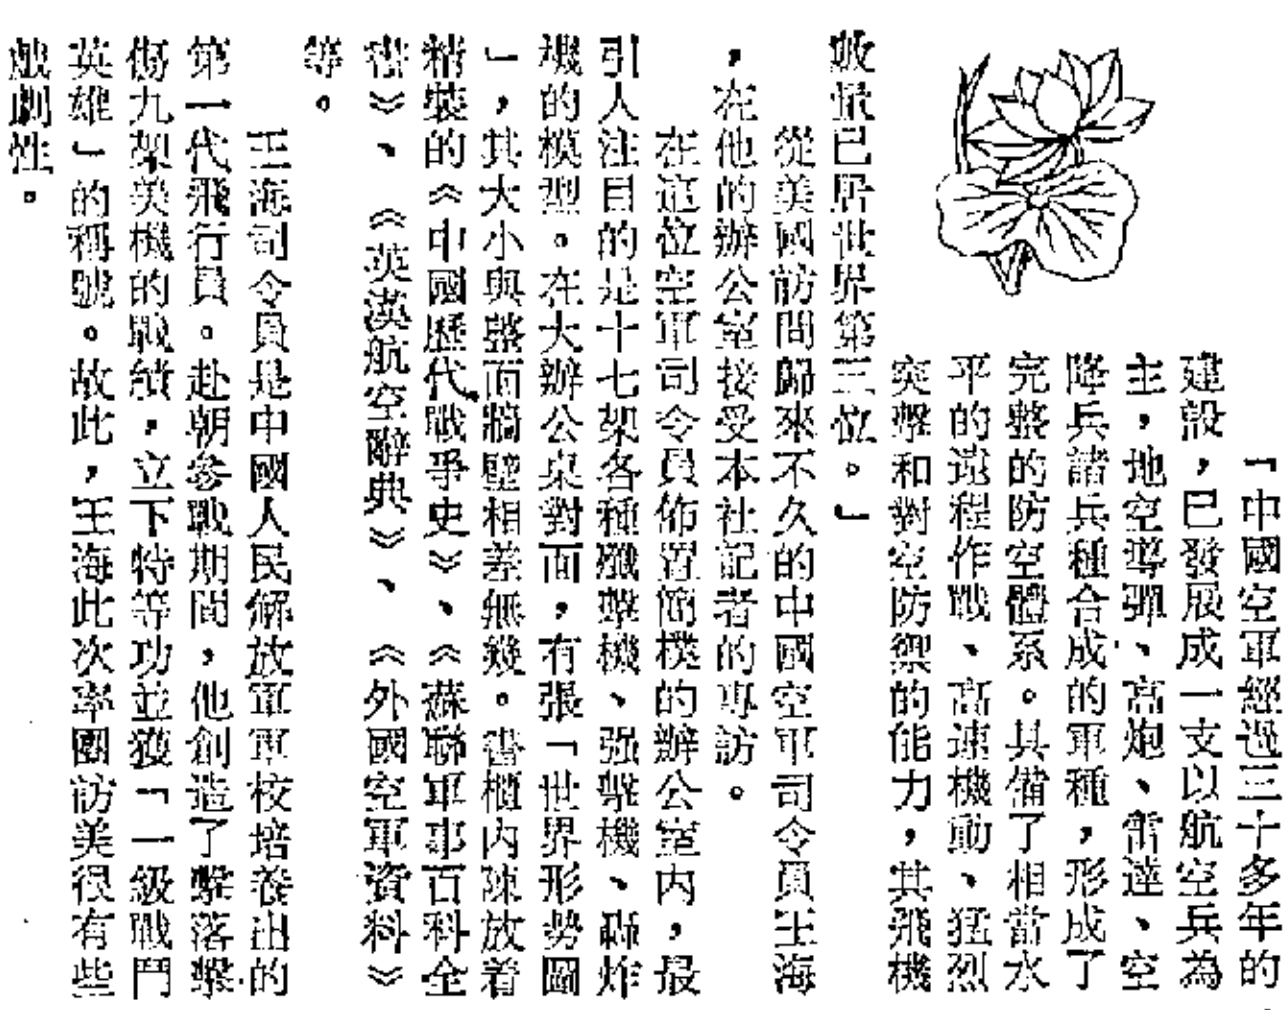 「中國空軍經過三十多年的
建設，已發展成一支以航空兵為
主，地空導彈、高炮、雷達、空
降兵諸兵種合成的軍種，形成了
完整的防空體系。具備了相當水
平的遠程作戰、高速機動、猛烈
突擊和對空防禦的能力，其飛機
數量已居世界第三位。」
從美國訪問歸來不久的中國空軍司令員王海
，在他的辦公室接受本社記者的專訪。
在這位空軍司令員佈置簡樸的辦公室內，最
引人注目的是十七架各種殲擊機、强擊機、轟炸
機的模型。在大辦公桌對面，有張「世界形勢圖
」，其大小與整面牆壁相差無幾。書櫃內陳放着
精裝的《中國歷代戰爭史》、《蘇聯軍事百科全
書》、《英漢航空辭典》、《外國空軍資料》
等。
王海司令員是中國人民解放軍軍校培養出的
第一代飛行員。赴朝參戰期間，他創造了擊落擊
傷九架美機的戰績，立下特等功並獲「一級戰鬥
英雄」的稱號。故此，王海此次率團訪美很有些
戲劇性。